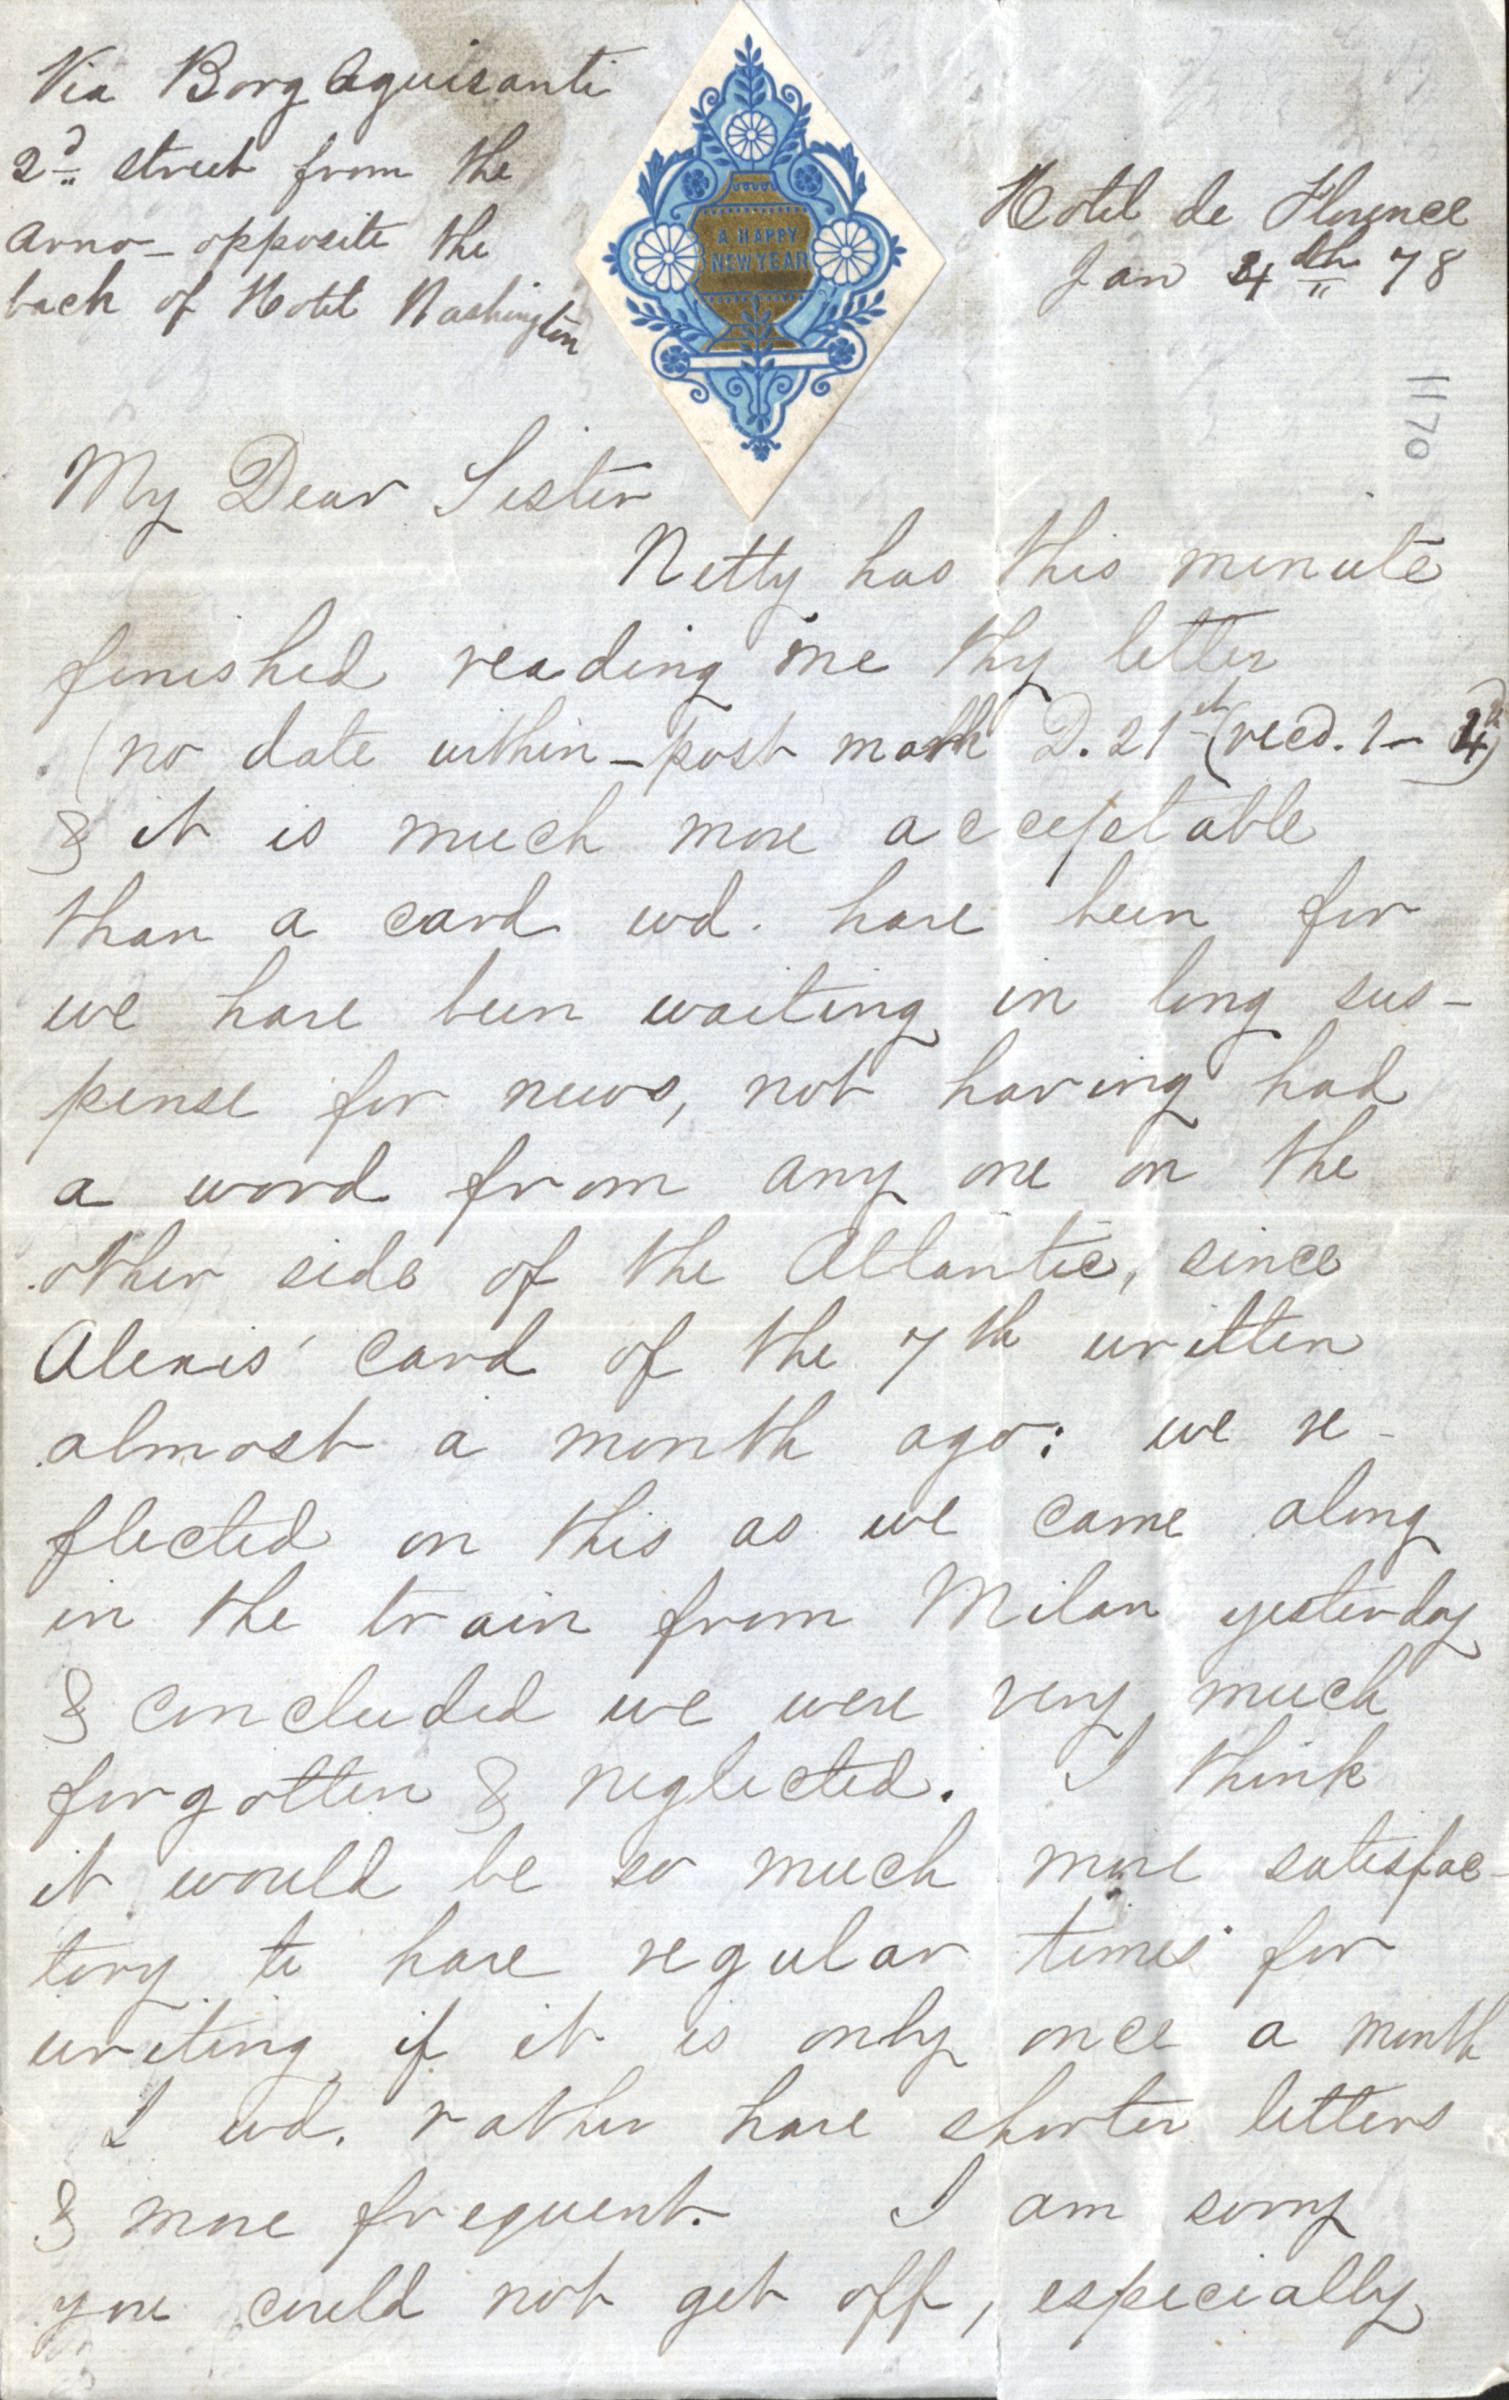 Via Borg Aguisanti
2d street from the
Arno - opposite the
back of Hotel Washington
A HAPPY
NEW YEAR
Hotel de Florence
Jan 4th 78
1170
My Dear Sister
Netty has this minute
finished reading me thy letter
(no date within - post mark D. 21st (recd. 1 - 4th)
& it is much more acceptable
than a card wd. have been for
we have been waiting in long sus-
pense for news, not having had
a word from any one on the
other side of the Atlantic, since
Alexis' card of the 7th written
almost a month ago: we re-
flected on this as we came along
in the train from Milan yesterday
& concluded we were very much
forgotten & neglected. I think
it would be so much more satisfac-
tory to have regular times for
writing if it is only once a month
I wd. rather have shorter letters
& more frequent. I am sorry
you could not get off, especially